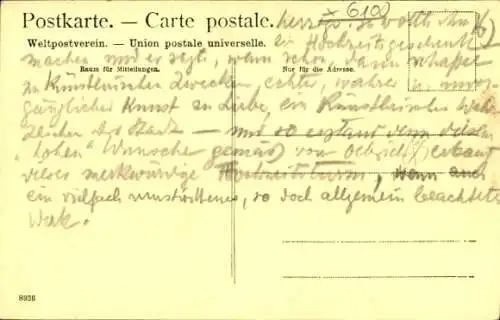 Postkarte. — Carte postale.
Weltpostverein. — Union postale universelle.
Raum für Mitteilungen. Nur für die Adresse.
6100
herzogs. So wollte ihm
ein Hochzeitsgeschenk
machen und er sagt, wenn schon, dann
zu künstlerischen Zwecken, echter, wahrer u.
gänglicher Kunst zu Liebe, ein künstlerisches
zeichen der Stadt — und so
"hohen" Wunsche gemäß von Olbrich erbaut
dieser merkwürdige Hochzeitsturm, wenn auch
ein vielfach umstrittenes, so doch allgemein beachtetes
Werk.
8926